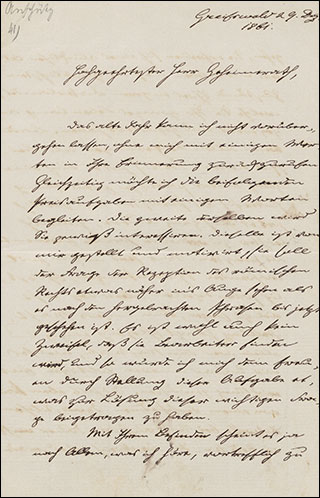 Anschütz
Greifswald d. 9. Dez.
1861.
Hochgeehrtester Herr Geheimerath,
Das alte Jahr kann ich nicht vorüber-
gehen lassen, ohne mich mit einigen Wor-
ten in Ihre Erinnerung zurückzurufen.
Gleichzeitig möchte ich die beifolgenden
Preisaufgaben mit einigen Worten
begleiten. Die zweite derselben wird
Sie gewiß interessiren. Dieselbe ist von
mir gestellt und motivirt; sie soll
der Frage der Rezeption des römischen
Rechts etwas näher ins Auge sehen als
es nach den hergebrachten Phrasen bis jetzt
geschehen ist. Es ist wohl auch kein
Zweifel, daß sie Bearbeiter finden
wird, und so würde ich mich dann freu-
en durch Stellung dieser Aufgabe et-
was zur Lösung dieser wichtigen Fra-
ge beigetragen zu haben.
Mit Ihrem Befinden scheint es ja
nach Allem, was ich höre, vortrefflich zu